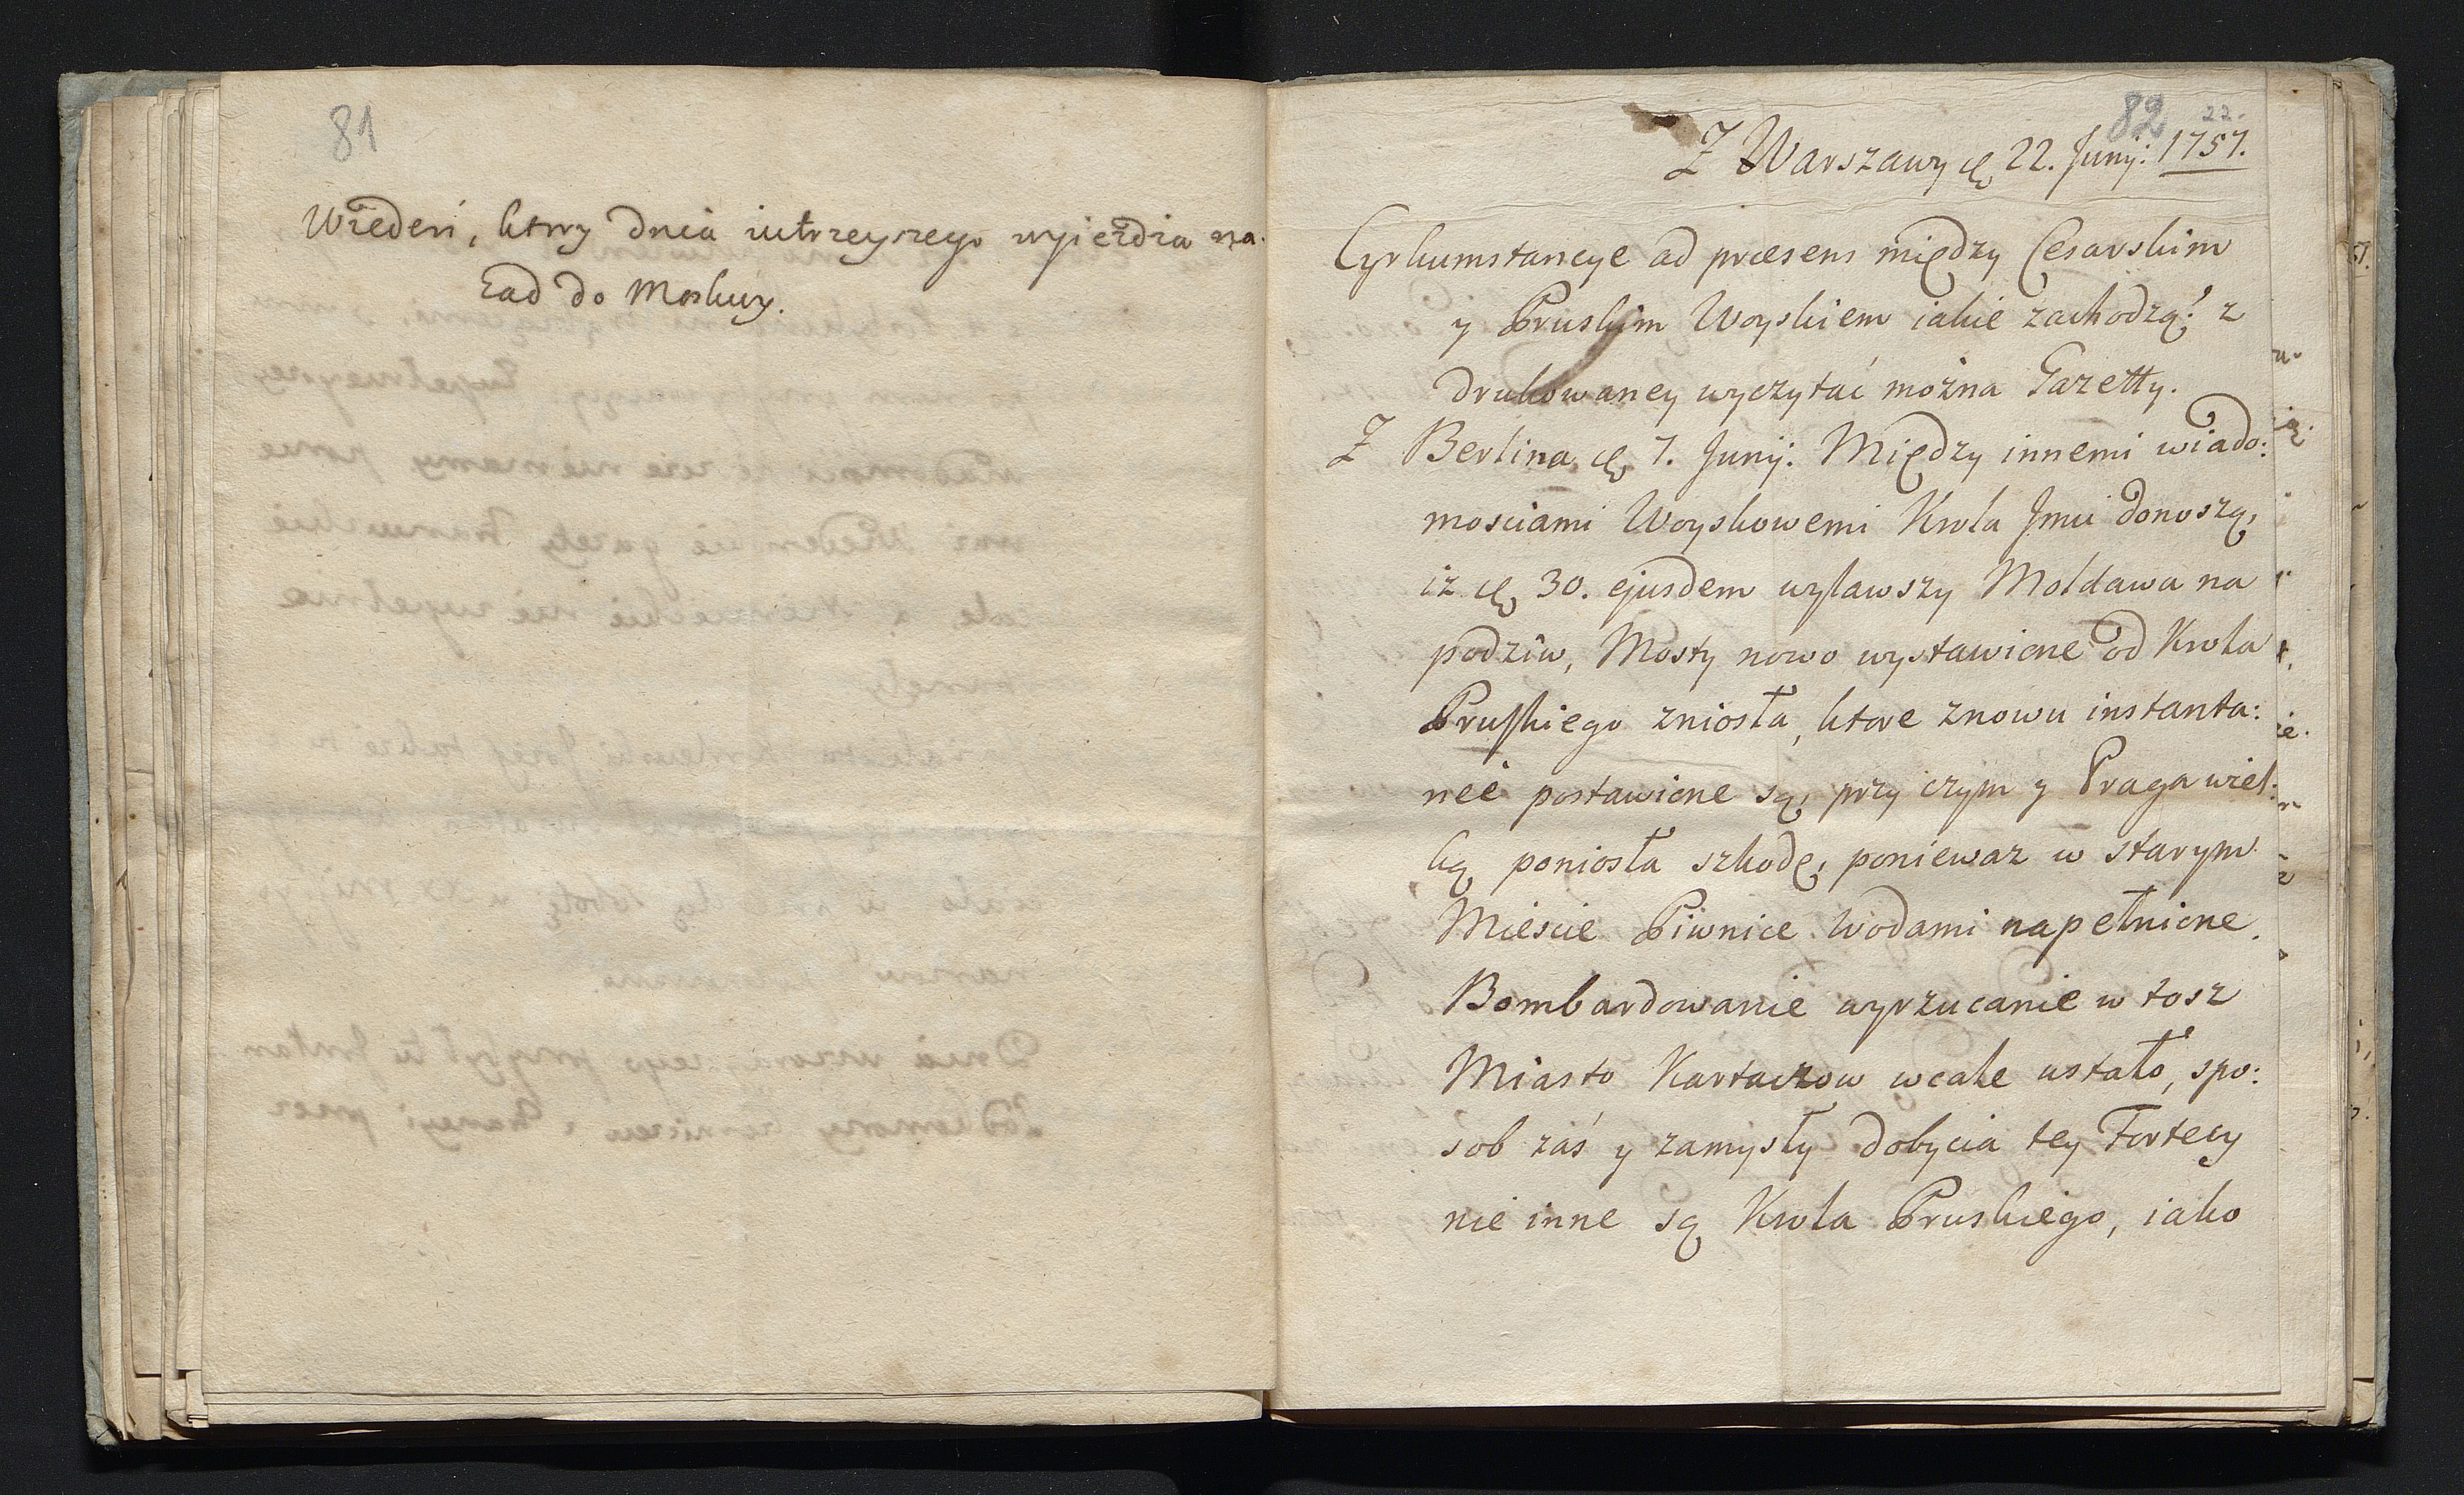 81
Wiedeń, ktory dnia iutrzeyszego wyieżdża na:
zad do Moskwy.
82 22.
Z Warszawy d. 22. Junij: 1757.
Cyrkumstancye ad præsens między Cesarskim
y Pruskim Woyskiem iakie zachodzą: z
drukowaney wyczytać można Gazetty.
Z Berlina d. 7. Junij: Między innemi wiado:
mosciami Woyskowemi Krola Jmci donoszą,
iż d. 30. ejusdem wylawszy Moldawa na
podziw, Mosty nowo wystawione od Krola
Pruskiego zniosła, ktore znowu instanta:
neé postawione są, przy czym y Praga wiel:
ką poniosła szkodę, poniewaz w starym
Miescie Piwnice Wodami napełnione.
Bombardowanie wyrzucanie w tosz
Miasto Kartaczow wcale ustało, spo:
sob zaś y zamysły dobycia tey Fortecy
nie inne są Krola Pruskiego, iako